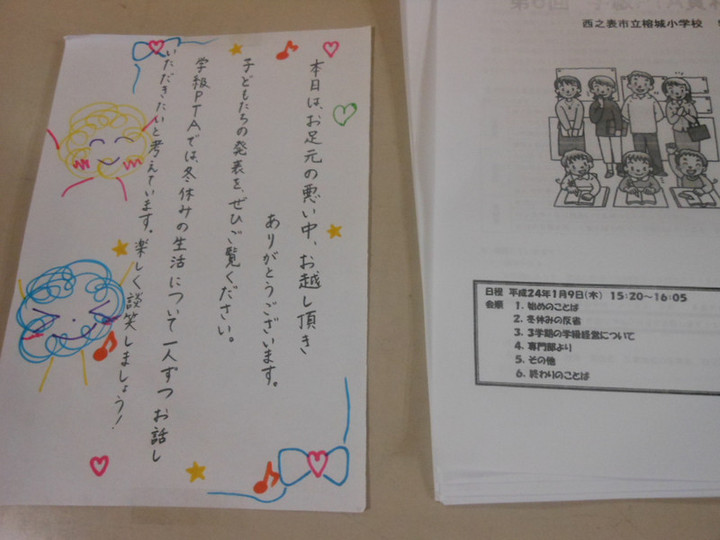 本日は、お足元の悪い中、お越し頂き
ありがとうございます。
子どもたちの発表を、ぜひご覧ください。
学級PTAでは、冬休みの生活について一人ずつお話し
いただきたいと考えています。楽しく談笑しましょう!
西之表市立榕城小学校
日程 平成24年1月9日(木) 15:20~16:05
会順 1. 始めのことば
2. 冬休みの反省
3. 3学期の学級経営について
4. 専門部より
5. その他
6. 終わりのことば